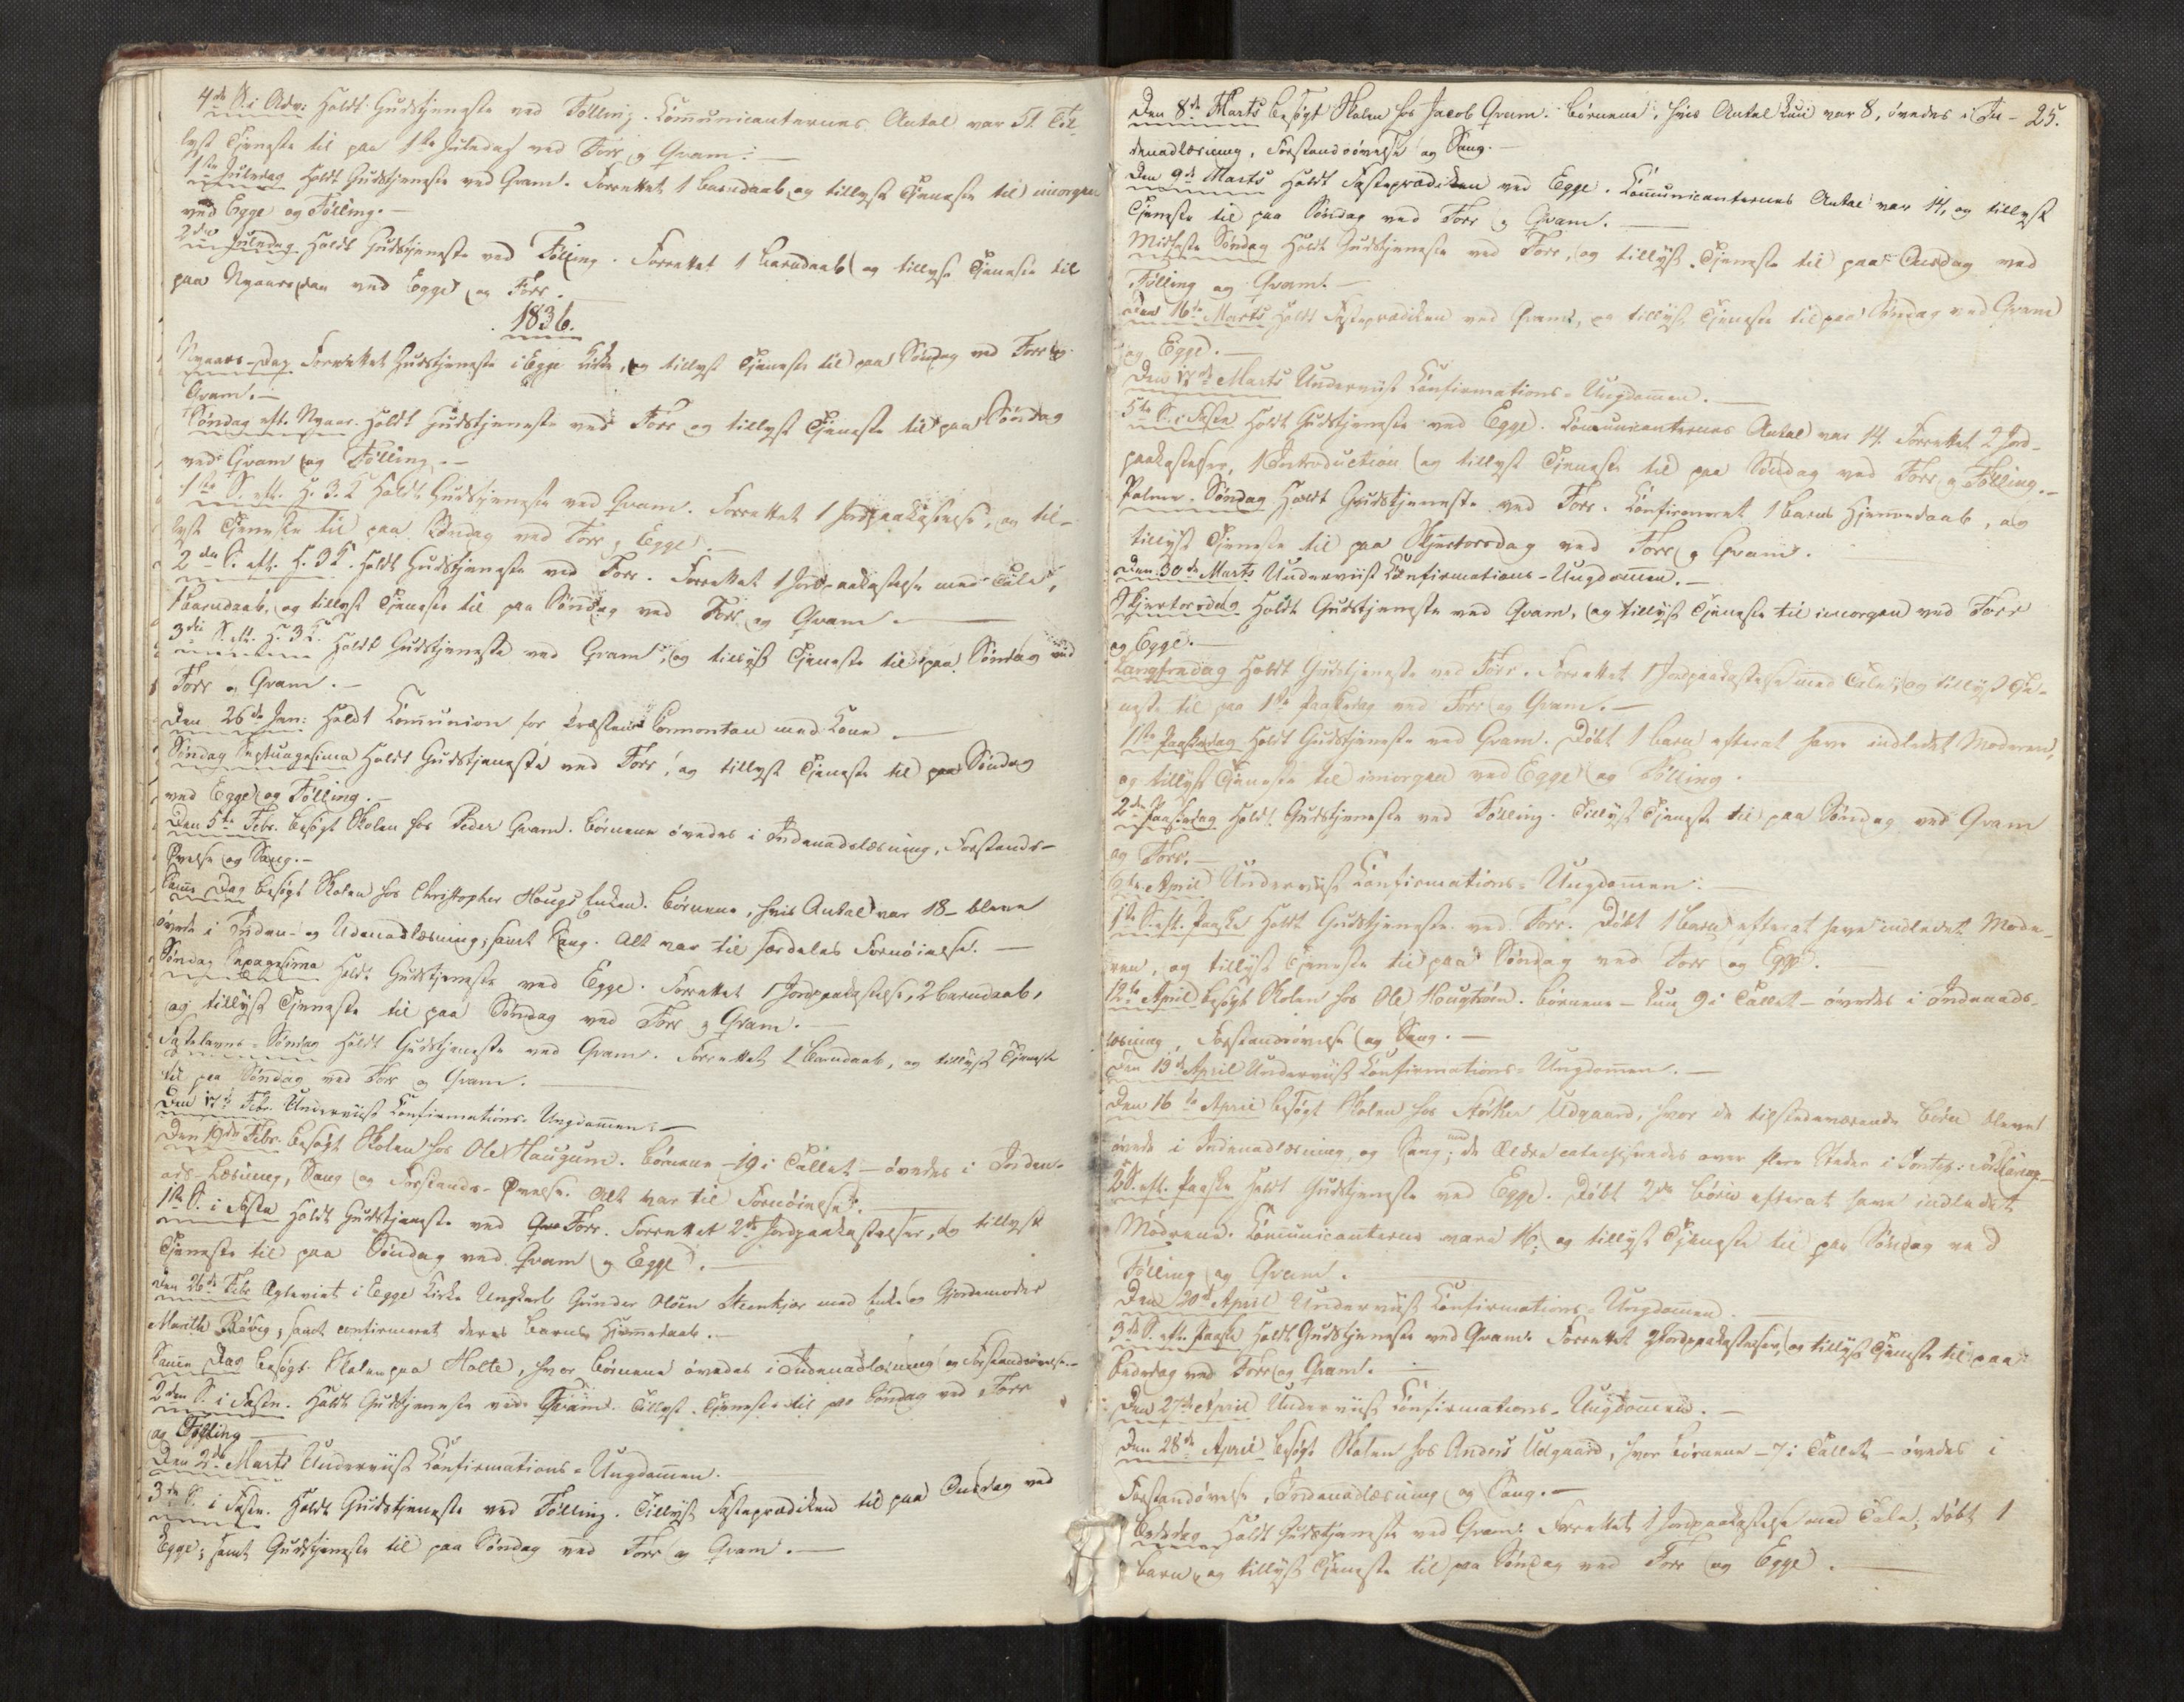 4de S. i Adv: Holdt Gudstjeneste ved Følling. Com̄unicanternes Antal var 51. Til-
lyst Tjeneste til paa 1ste Juledag ved Forr og Qvam. —
1ste Juledag Holdt Gudstjeneste ved Qvam. Forrettet 1 Barndaab, og tillyst Tjeneste til imorgen
ved Egge og Følling. —
2den Juledag Holdt Gudstjeneste ved Følling. Forrettet 1 Barndaab og tillyst Tjeneste til
paa Nyaarsdag ved Egge og Forr.
1836.
Nyaars-Dag Forrettet Gudstjeneste i Egge Kirke, og tillyst Tjeneste til paa Søndag ved Forr og
Qvam. —
Søndag eft. Nyaar. Holdt Gudstjeneste ved Forr og tillyst Tjeneste til paa Søndag
ved Qvam og Følling. —
1ste S. eft. H. 3 K Holdt Gudstjeneste ved Qvam. Forrettet 1 Jordpaakastelse, og til-
lyst Tjeneste til paa Søndag ved Forr og Egge. —
2den S. eft. H. 3 K. Holdt Gudstjeneste ved Forr. Forrettet 1 Jordpaakastelse med Tale,
1 Barndaab, og tillyst Tjeneste til paa Søndag ved Forr og Qvam. —
3die S. eft. H. 3 K. Holdt Gudstjeneste ved Qvam, og tillyst Tjeneste til paa Søndag ved
Forr og Qvam. —
Den 26de Jan: Holdt Com̄union for Præsten Cormontan med Kone. —
Søndag Septuagesima Holdt Gudstjeneste ved Forr, og tillyst Tjeneste til paa Søndag
ved Egge og Følling. —
Den 5te Febr. besøgt Skolen hos Peder Qvam. Børnene øvedes i Indenadslæsning, Forstands-
Øvelse og Sang. —
Sam̄e Dag besøgt Skolen hos Christopher Hougs Enken. Børnene, hvis Antal var 18 – bleve
øvede i Inden- og Udenadlæsning, samt Sang. Alt var til særdeles Fornøielse. —
Søndag Sexagesima Holdt Gudstjeneste ved Egge. Forrettet 1 Jordpaakastelse, 2 Barndaab,
og tillyst Tjeneste til paa Søndag ved Forr og Qvam. —
Fastelavns-Søndag Holdt Gudstjeneste ved Qvam. Forrettet 1 Barndaab, og tillyst Tjeneste
til paa Søndag ved Forr og Qvam. —
Den 17de Febr. Underviist Confirmations-Ungdom̄en. —
Den 19de Febr. besøgt Skolen hos Ole Haugum. Børnene – 19 i Tallet – øvedes i Inden-
ads-Læsning, Sang og Forstands-Øvelse. Alt var til Fornøielse. —
1ste S. i Faste Holdt Gudstjeneste ved Forr. Forrettet 2de Jordpaakastelser, og tillyst
Tjeneste til paa Søndag ved Qvam og Egge. —
Den 26de Febr. Egteviet i Egge Kirke Ungkarl Gunder Olsen Steenkjær med Enke og Gjordemoder
Marith Røbeg, samt confirmeret deres Barns Hjem̄edaab. —
Sam̄e Dag besøgt Skolen paa Holte, hvor Børnene øvedes i Indenadlæsning og Forstandsøvelse. —
2den S. i Fasten. Holdt Gudstjeneste ved Qvam. Tillyst Tjeneste til paa Søndag ved Forr
og Følling —
Den 2de Marts Underviist Confirmations-Ungdom̄en. —
3die S. i Fasten. Holdt Gudstjeneste ved Følling. Tillyst Fasteprædiken til paa Onsdag ved
Egge; samt Gudstjeneste til paa Søndag ved Forr og Qvam. —
25.
Den 8de Marts besøgt Skolen hos Jacob Qvam. Børnene, hvis Antal kun var 8, øvedes i In-
denadlæsning, Forstandsøvelse og Sang. —
Den 9de Marts Holdt Fasteprædiken ved Egge. Com̄unicanternes Antal var 14, og tillyst
Tjeneste til paa Søndag ved Forr og Qvam. —
Midfaste Søndag Holdt Gudstjeneste ved Forr, og tillyst Tjeneste til paa Onsdag ved
Følling og Qvam. —
Den 16de Marts Holdt Fasteprædiken ved Qvam, og tillyst Tjeneste til paa Søndag ved Qvam
og Egge. —
Den 17de Marts Underviist Confirmations-Ungdom̄en. —
5te S. i Faste Holdt Gudstjeneste ved Egge. Com̄unicanternes Antal var 14. Forrettet 2 Jord-
paakastelser, 1 Introduction og tillyst Tjeneste til paa Søndag ved Forr og Følling. —
Palme-Søndag Holdt Gudstjeneste ved Forr. Confirmeret 1 Barns Hjem̄edaab, og
tillyst Tjeneste til paa Skjertorsdag ved Forr og Qvam. —
Den 30de Marts Underviist Confirmations-Ungdom̄en. —
Skjertorsdag Holdt Gudstjeneste ved Qvam, og tillyst Tjeneste til imorgen ved Forr
og Egge. —
Langfredag Holdt Gudstjeneste ved Forr. Forrettet 1 Jordpaakastelse med Tale, og tillyst Tje-
neste til paa 1ste Paaskedag ved Forr og Qvam. —
1ste Paaskedag Holdt Gudstjeneste ved Qvam. Døbt 1 Barn efterat have indledet Moderen,
og tillyst Tjeneste til imorgen ved Egge og Følling.
2den Paaskedag Holdt Gudstjeneste ved Følling. Tillyst Tjeneste til paa Søndag ved Qvam
og Forr. —
6te April Underviist Confirmations-Ungdom̄en. —
1ste S. eft. Paaske Holdt Gudstjeneste ved Forr. Døbt 1 Barn efterat have indledet Mode-
ren, og tillyst Tjeneste til paa Søndag ved Forr og Egge.
12te April besøgt Skolen hos Ole Hougtrøen. Børnene – kun 9 i Tallet – øvedes i Indenads-
læsning, Forstandsøvelse og Sang. —
Den 13de April Underviist Confirmations-Ungdom̄en. —
Den 16de April besøgt Skolen hos Størker Udgaard, hvor de tilstedeværende Børn bleve
øvede i Indenadlæsning og Sang, de Ældre catechiseredes over flere Steder i Pontop: Forklaring. —
2 S. eft. Paaske Holdt Gudstjeneste ved Egge. Døbt 2de Børn efterat have indledet
Mødrene. Com̄unicanterne vare 16, og tillyst Tjeneste til paa Søndag ved
Følling og Qvam. —
Den 20de April Underviist Confirmations-Ungdom̄en. —
3die S. eft. Paaske Holdt Gudstjeneste ved Qvam. Forrettet 2 Jordpaakastelser, og tillyst Tjeneste til paa
Bededag ved Forr og Qvam. —
Den 27de April Underviist Confirmations-Ungdom̄en. —
Den 28de April besøgt Skolen hos Anders Udgaard, hvor Børnene – 7 i Tallet – øvedes i
Forstandøvelse, Indenadlæsning og Sang. —
Bededag Holdt Gudstjeneste ved Qvam. Forrettet 1 Jordpaakastelse med Tale, døbt 1
Barn, og tillyst Tjeneste til paa Søndag ved Forr og Egge. —